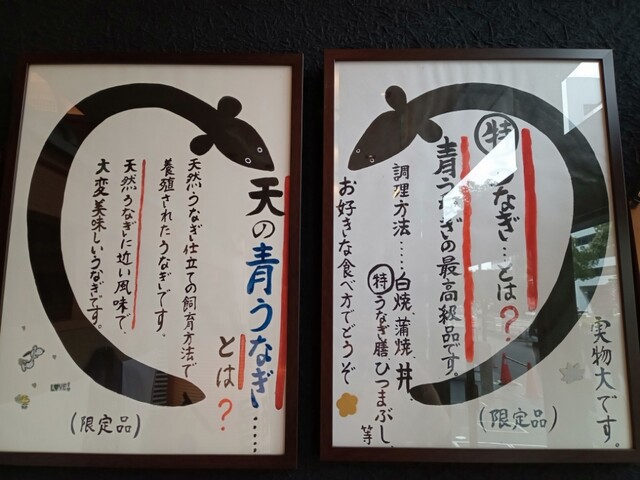 天の青うなぎ……
とは?
天然うなぎ仕立ての飼育方法で
養殖されたうなぎです。
天然うなぎに近い風味で、
大変美味しいうなぎです。
(限定品)
実物大です。
特うなぎ…とは?
青うなぎの最高級品です。
(限定品)
調理方法….白焼、蒲焼、丼、
特うなぎ膳、ひつまぶし、等
お好きな食べ方でどうぞ